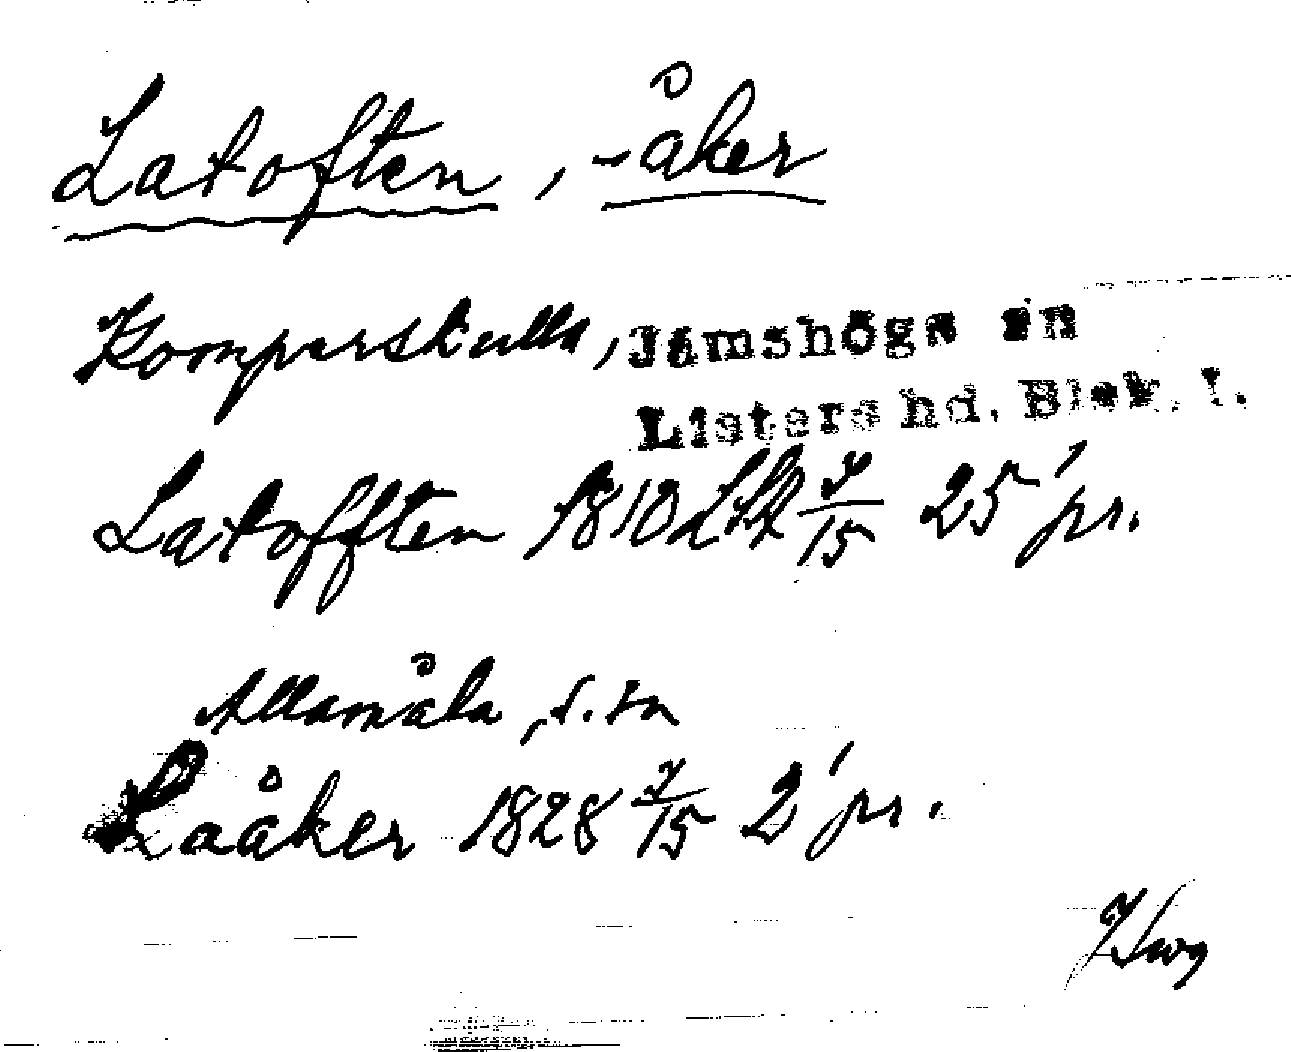 Latoften, -åker
Komperskulla, Jämshögs sn
Listers hd. Blek. l.
Latofften 1810 LSk 7/15 25' pr.
Allamåla, s. sn
Laåker 1828 7/15 2' pr.